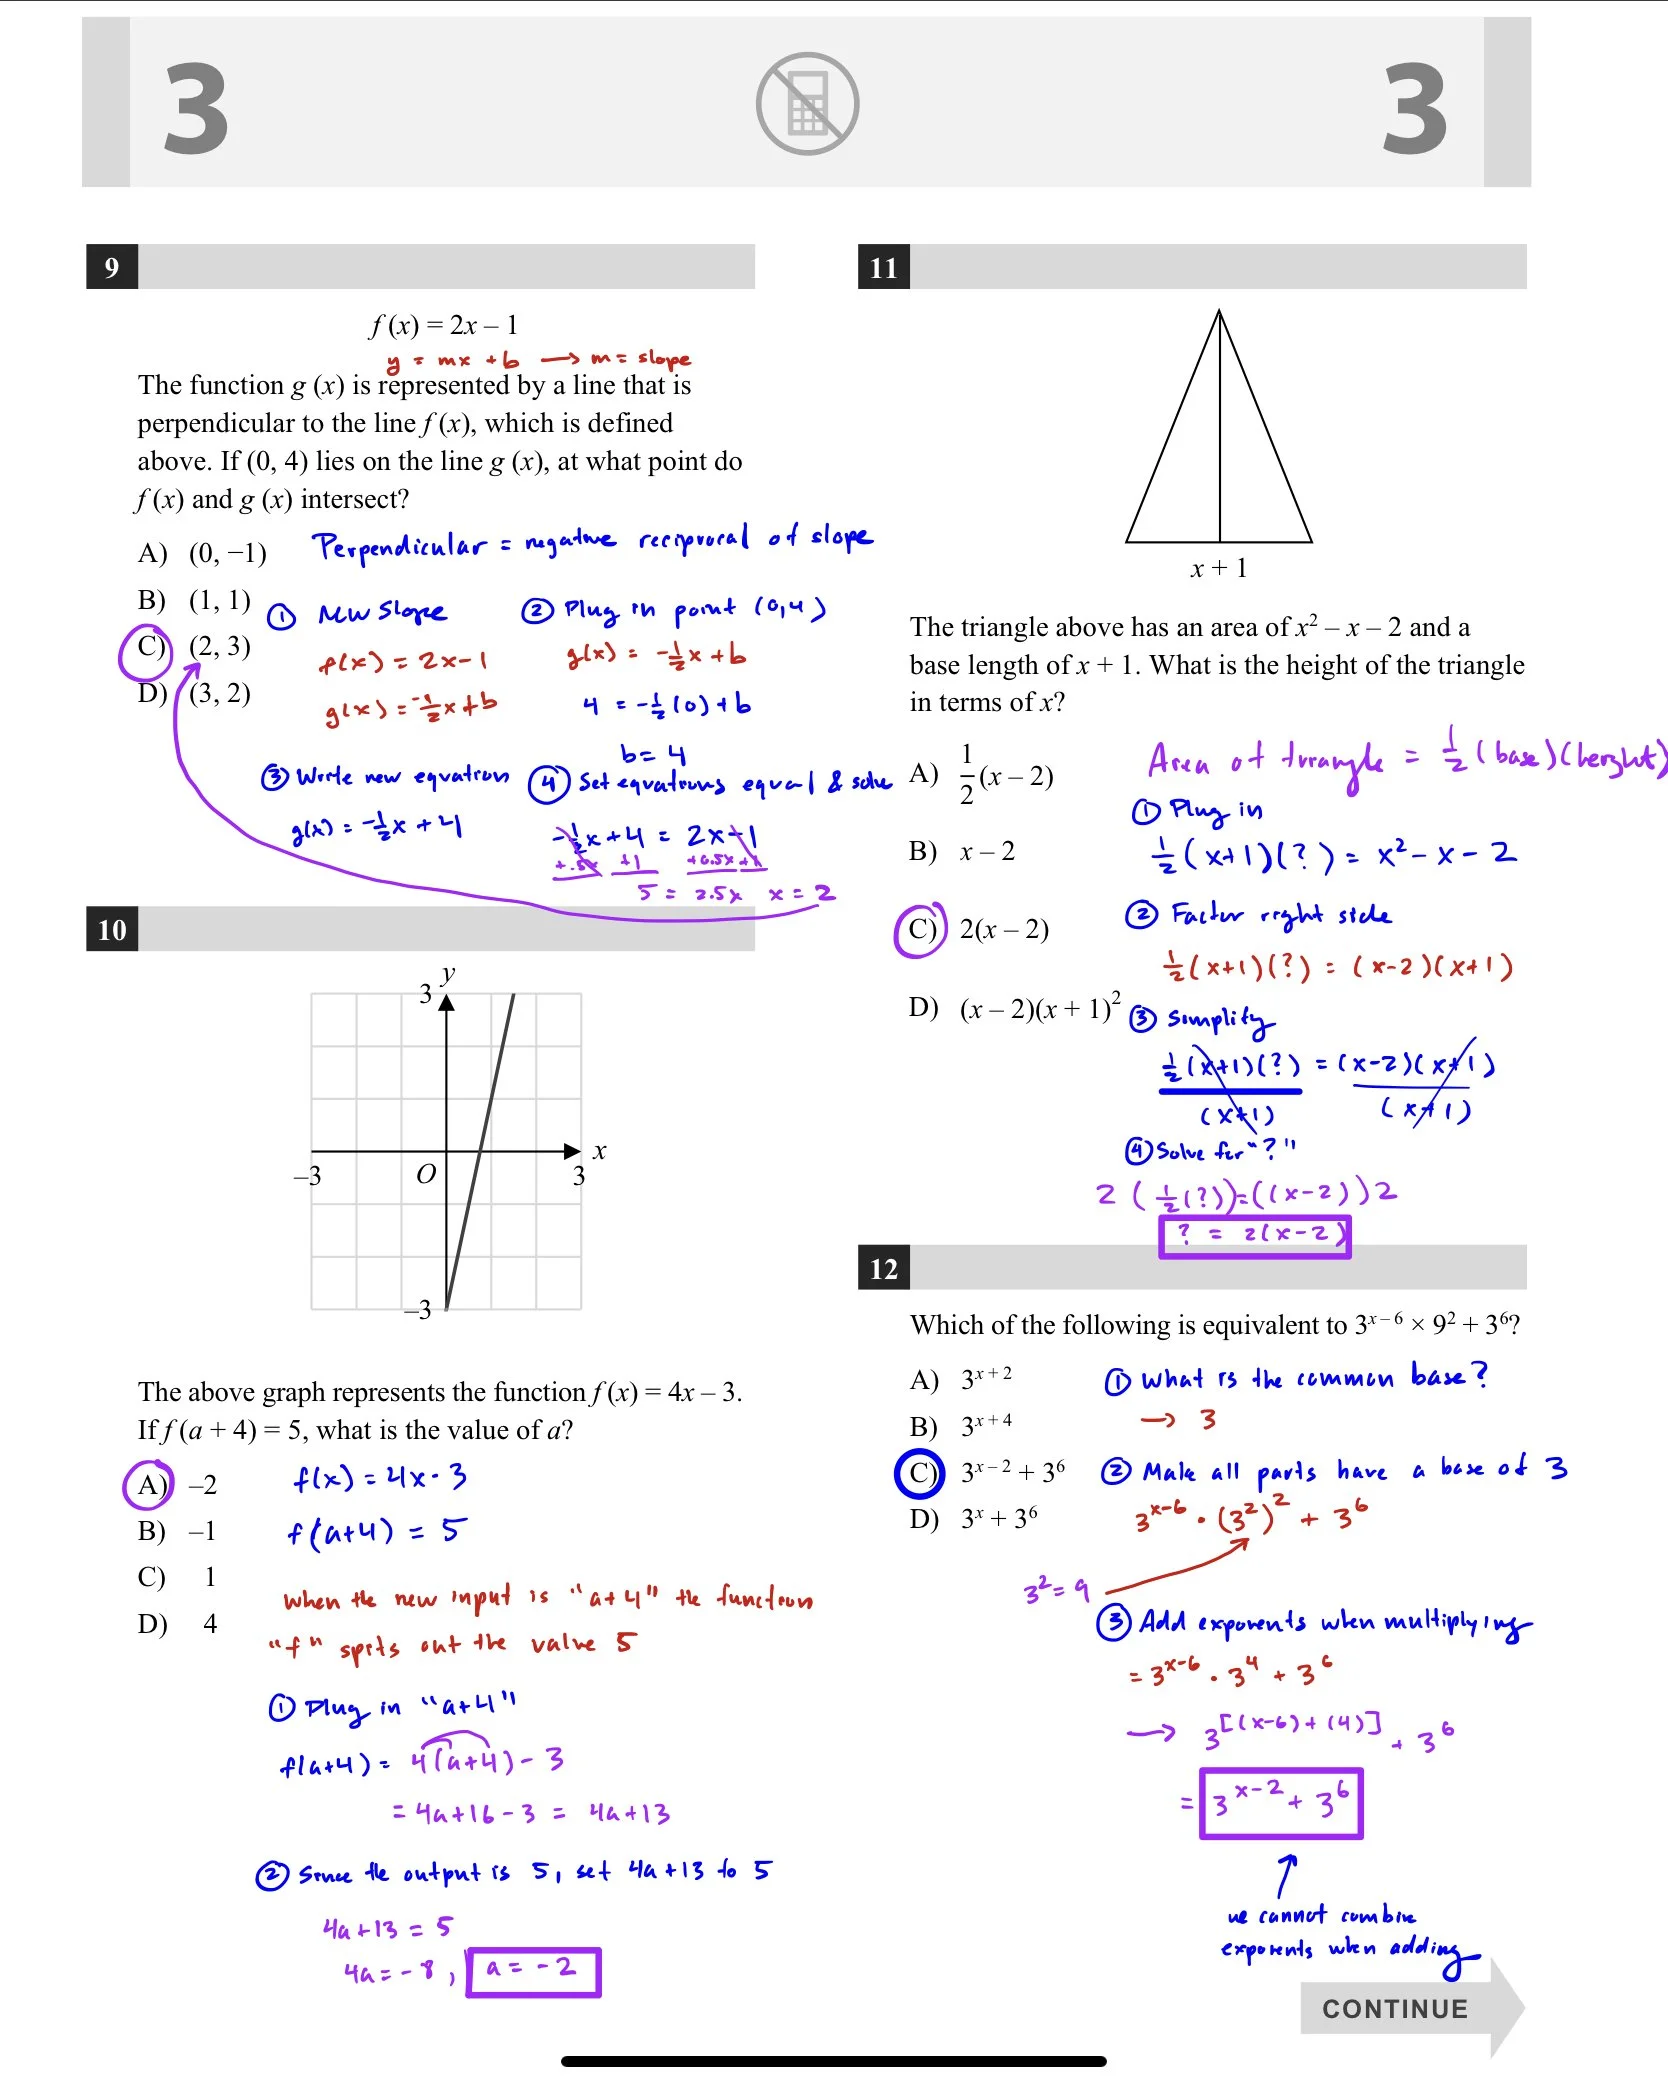 3 3
9
f (x) = 2x – 1
y = mx + b → m = slope
The function g (x) is represented by a line that is
perpendicular to the line f (x), which is defined
above. If (0, 4) lies on the line g (x), at what point do
f (x) and g (x) intersect?
A) (0, −1)
B) (1, 1)
C) (2, 3)
D) (3, 2)
Perpendicular = negative reciprocal of slope
① New Slope
f(x) = 2x-1
g(x) = -½x+b
② Plug in point (0,4)
g(x) = -½x+b
4 = -½(0)+b
b= 4
③ Write new equation
g(x) = -½x + 4
④ Set equations equal & solve
-½x+4 = 2x-1
+.5x +1 +0.5x +1
5 = 2.5x x = 2
10
y
3
x
–3 O 3
–3
The above graph represents the function f (x) = 4x – 3.
If f (a + 4) = 5, what is the value of a?
A) –2
B) –1
C) 1
D) 4
f(x) = 4x - 3
f(a+4) = 5
when the new input is "a+4" the function
"f" spits out the value 5
① Plug in "a+4"
f(a+4) = 4(a+4) - 3
= 4a+16-3 = 4a+13
② Since the output is 5, set 4a+13 to 5
4a+13 = 5
4a = -8, a = -2
11
x + 1
The triangle above has an area of x² – x – 2 and a
base length of x + 1. What is the height of the triangle
in terms of x?
A) 1/2(x – 2)
B) x – 2
C) 2(x – 2)
D) (x – 2)(x + 1)²
Area of triangle = ½(base)(height)
① Plug in
½(x+1)(?) = x²-x-2
② Factor right side
½(x+1)(?) = (x-2)(x+1)
③ Simplify
½(x+1)(?) = (x-2)(x+1)
(x+1) (x+1)
④ Solve for "?"
2(½(?))=((x-2))2
? = 2(x-2)
12
Which of the following is equivalent to 3ˣ⁻⁶ × 9² + 3⁶?
A) 3ˣ⁺²
B) 3ˣ⁺⁴
C) 3ˣ⁻² + 3⁶
D) 3ˣ + 3⁶
① What is the common base?
→ 3
② Make all parts have a base of 3
3ˣ⁻⁶ · (3²)² + 3⁶
3² = 9
③ Add exponents when multiplying
= 3ˣ⁻⁶ · 3⁴ + 3⁶
→ 3^[(x-6)+(4)] + 3⁶
= 3ˣ⁻² + 3⁶
we cannot combine
exponents when adding
CONTINUE